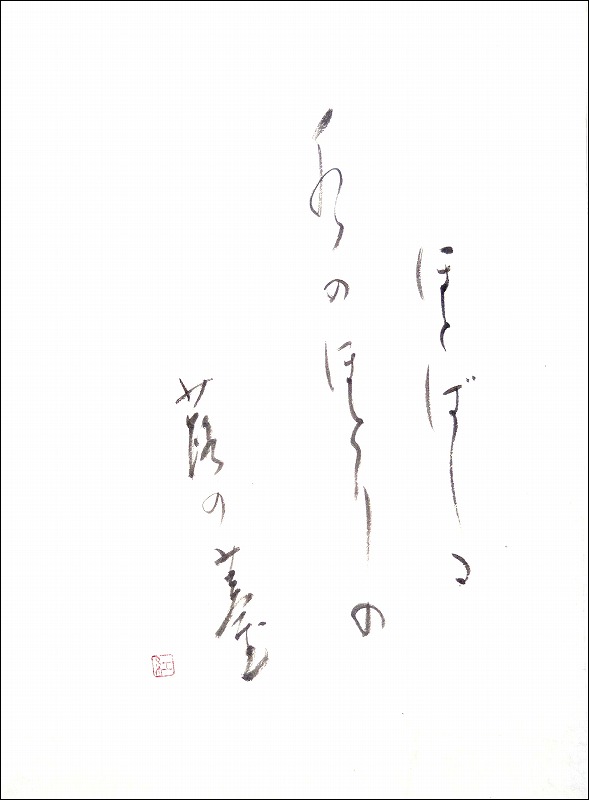 ほとばしる
水のほとりの
蕗の薹